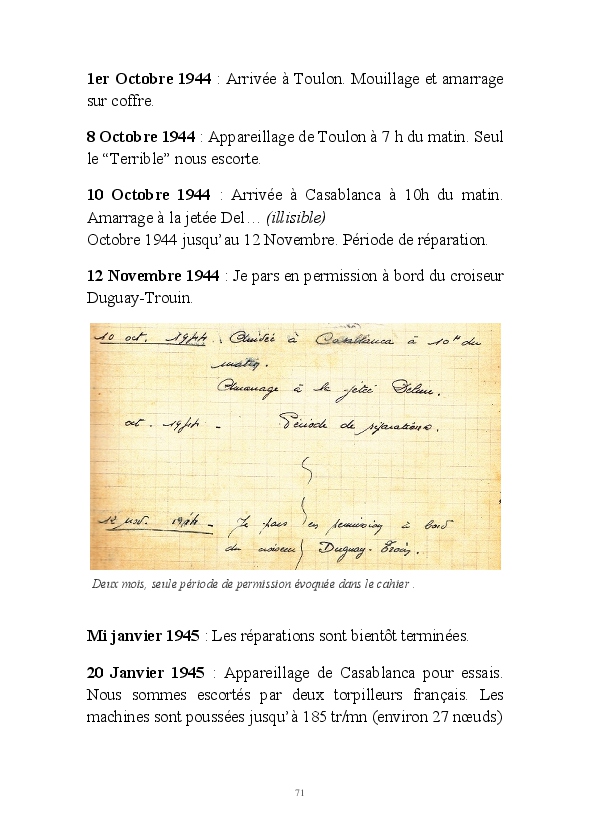 1er Octobre 1944 : Arrivée à Toulon. Mouillage et amarrage
sur coffre.
8 Octobre 1944 : Appareillage de Toulon à 7 h du matin. Seul
le “Terrible” nous escorte.
10 Octobre 1944 : Arrivée à Casablanca à 10h du matin.
Amarrage à la jetée Del… (illisible)
Octobre 1944 jusqu’au 12 Novembre. Période de réparation.
12 Novembre 1944 : Je pars en permission à bord du croiseur
Duguay-Trouin.
10 oct. 1944. Arrivée à Casablanca à 10H du
matin.
Amarrage à la jetée
oct. 1944 - Période de réparations.
12 nov. 1944 - Je pars en permission à bord
du croiseur Duguay-Trouin.
Deux mois, seule période de permission évoquée dans le cahier .
Mi janvier 1945 : Les réparations sont bientôt terminées.
20 Janvier 1945 : Appareillage de Casablanca pour essais.
Nous sommes escortés par deux torpilleurs français. Les
machines sont poussées jusqu’à 185 tr/mn (environ 27 nœuds)
71